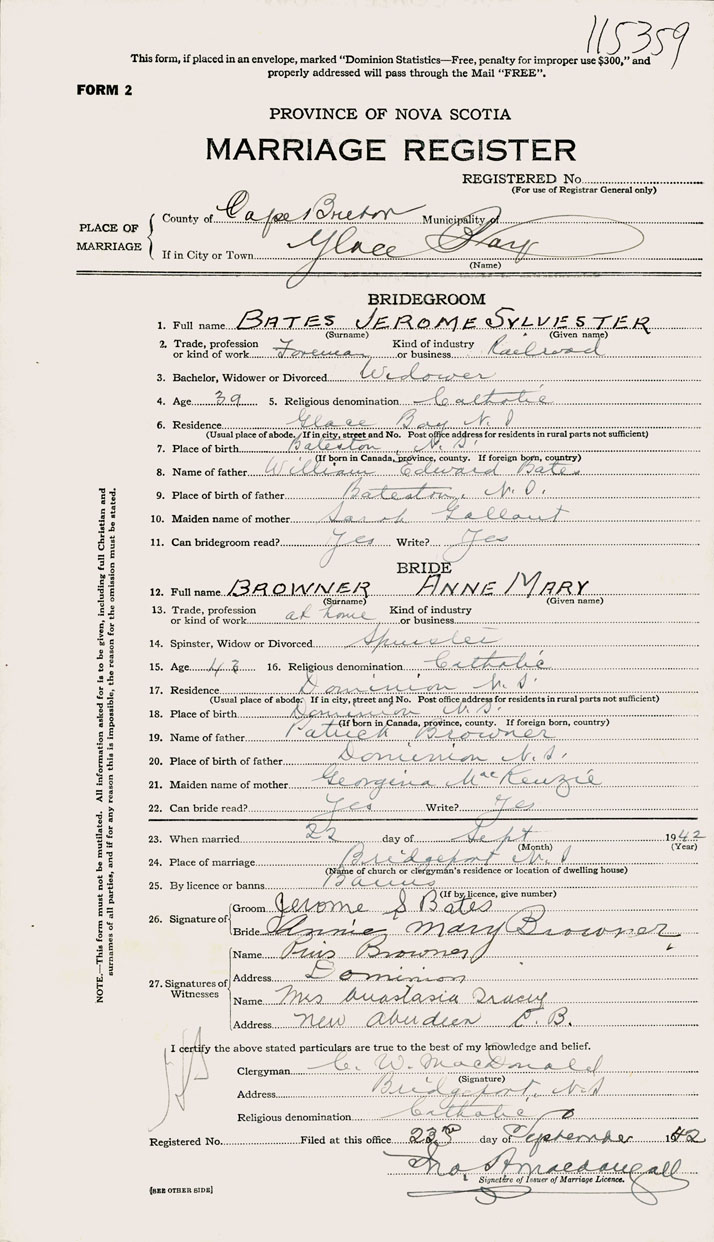 115359
This form, if placed in an envelope, marked "Dominion Statistics—Free, penalty for improper use $300," and
properly addressed will pass through the Mail "FREE".
FORM 2
PROVINCE OF NOVA SCOTIA
MARRIAGE REGISTER
REGISTERED No.
(For use of Registrar General only)
PLACE OF MARRIAGE
County of Cape Breton Municipality of
If in City or Town Glace Bay
(Name)
BRIDEGROOM
1. Full name BATES JEROME SYLVESTER
(Surname) (Given name)
2. Trade, profession or kind of work Foreman Kind of industry or business Railroad
3. Bachelor, Widower or Divorced Widower
4. Age 39 5. Religious denomination Catholic
6. Residence Glace Bay N.S
(Usual place of abode. If in city, street and No. Post office address for residents in rural parts not sufficient)
7. Place of birth Bateston, N.S.
(If born in Canada, province, county. If foreign born, country)
8. Name of father William Edward Bates
9. Place of birth of father Bateston, N.S.
10. Maiden name of mother Sarah Gallant
11. Can bridegroom read? Yes Write? Yes
BRIDE
12. Full name BROWNER ANNE MARY
(Surname) (Given name)
13. Trade, profession or kind of work at home Kind of industry or business
14. Spinster, Widow or Divorced Spinster
15. Age 43 16. Religious denomination Catholic
17. Residence Dominion N.S.
(Usual place of abode. If in city, street and No. Post office address for residents in rural parts not sufficient)
18. Place of birth Dominion N.S.
(If born in Canada, province, county. If foreign born, country)
19. Name of father Patrick Browner
20. Place of birth of father Dominion N.S.
21. Maiden name of mother Georgina MacKenzie
22. Can bride read? Yes Write? Yes
23. When married 22 day of Sept 1942
(Month) (Year)
24. Place of marriage Bridgeport N.S
(Name of church or clergyman's residence or location of dwelling house)
25. By licence or banns Banns
(If by licence, give number)
26. Signature of
Groom Jerome S Bates
Bride Annie Mary Browner
27. Signatures of Witnesses
Name Pius Browner
Address Dominion
Name Mrs Anastasia Tracey
Address New Aberdeen C.B.
I certify the above stated particulars are true to the best of my knowledge and belief.
Clergyman C. W. MacDonald
(Signature)
Address Bridgeport, N.S
Religious denomination Catholic
Registered No. Filed at this office 23rd day of September 1942
Jno A Macdougall
Signature of Issuer of Marriage Licence.
[SEE OTHER SIDE]
NOTE.—This form must not be mutilated. All information asked for is to be given, including full Christian and
surnames of all parties, and if for any reason this is impossible, the reason for the omission must be stated.